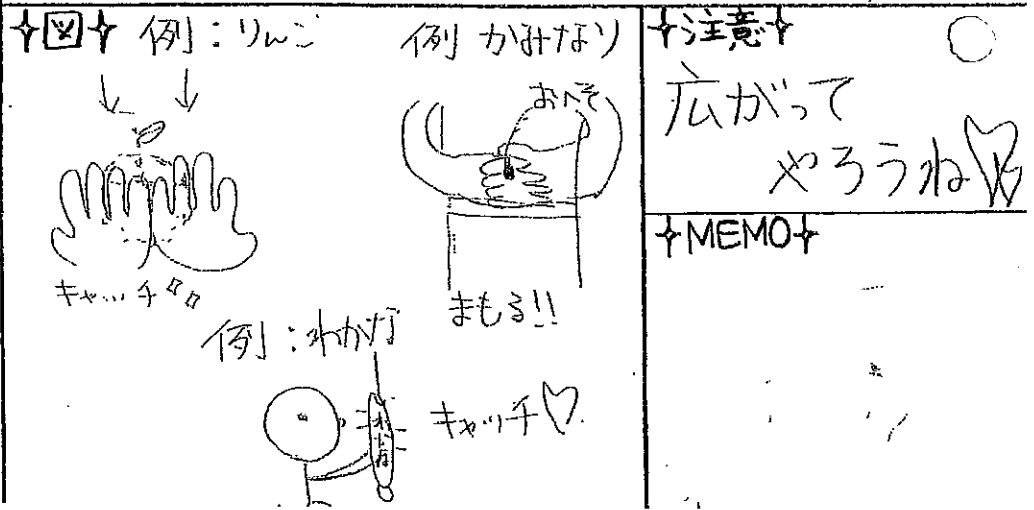 図
例：りんご
キャッチ
例 かみなり
おへそ
まもる!!
例：わかな
キャッチ♡
注意
広がって
やろうね♡
MEMO